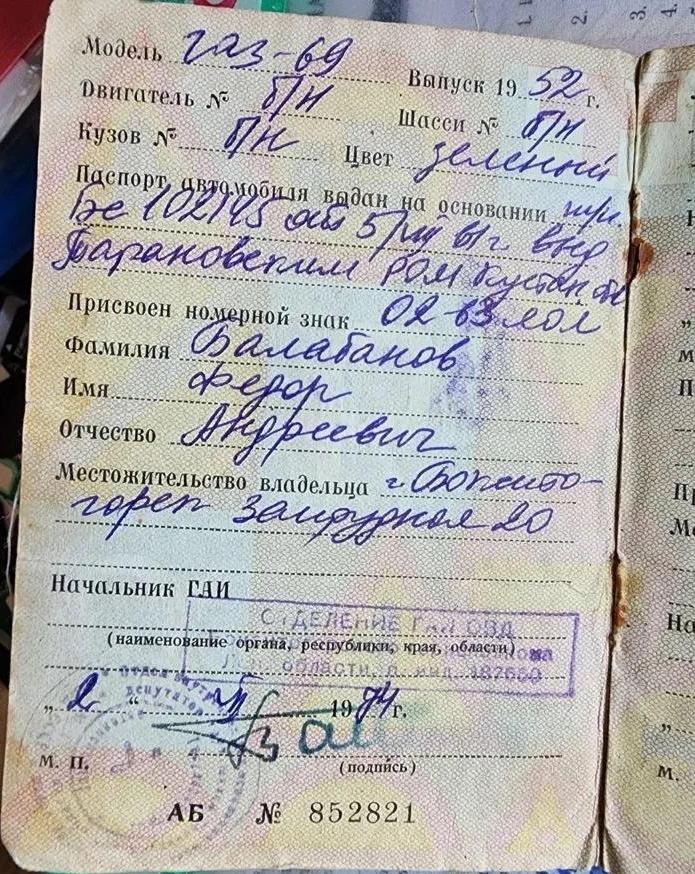 Модель газ-69 Выпуск 1952 г.
Двигатель № б/н Шасси № б/н
Кузов № б/н Цвет зеленый
Паспорт автомобиля выдан на основании
102145 от 5/VIII 61г. выд
Тарановским РОМ Кустан
Присвоен номерной знак 02-63 ЛОЛ
Фамилия Балабанов
Имя Федор
Отчество Андреевич
Местожительство владельца г. Бокито-
горск 20
Начальник ГАИ
ОТДЕЛЕНИЕ ГАИ ОВД
(наименование органа, республики, края, области)
области, инд. 187650
„ 2 “ 1974 г.
М. П. (подпись)
АБ № 852821